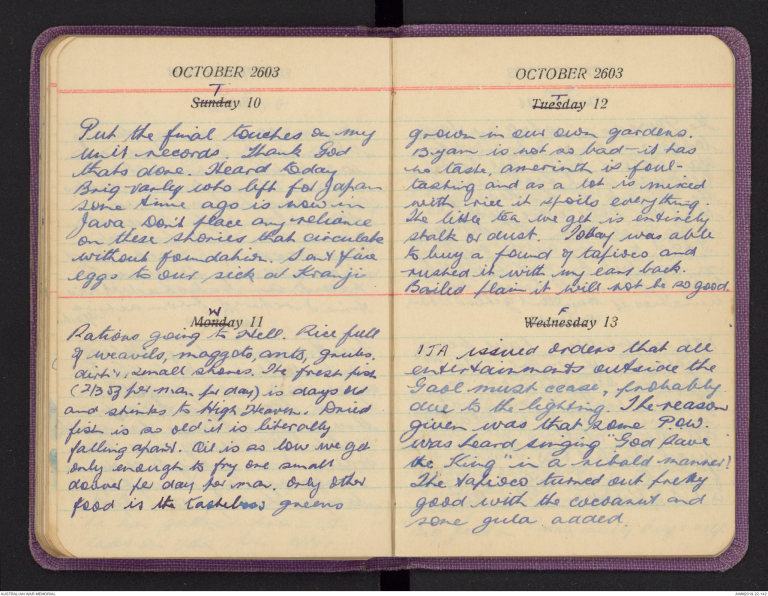 OCTOBER 2603
T
Sunday 10
Put the final touches on my
unit records. Thank God
thats done. Heard today
Brig Varley who left for Japan
some time ago is now in
Java. Don't place any reliance
on these stories that circulate
without foundation. Sent five
eggs to our sick at Kranji
W
Monday 11
Rations going to Hell. Rice full
of weavils, maggots, ants, grubs,
dirt & small stones. The fresh fish
(2/3 oz per man per day) is days old
and stinks to High Heaven. Dried
fish is so old it is literally
falling apart. Oil is so low we get
only enough to fry one small
doover per day per man. Only other
food is the tasteless greens
OCTOBER 2603
T
Tuesday 12
grown in our own gardens.
Byam is not so bad - it has
no taste, amerinth is foul-
tasting and as a lot is mixed
with rice it spoils everything.
The little tea we get is entirely
stalk or dust. Today was able
to buy a pound of tapioco and
rushed it with my ears back.
Boiled plain it will not be so good.
F
Wednesday 13
IJA issued orders that all
entertainments outside the
Gaol must cease, probably
due to the lighting. The reason
given was that some POW.
was heard singing "God Save
the King" in a ribald manner!
The tapioco turned out pretty
good with the cocoanut and
some gula added.
AUSTRALIAN WAR MEMORIAL